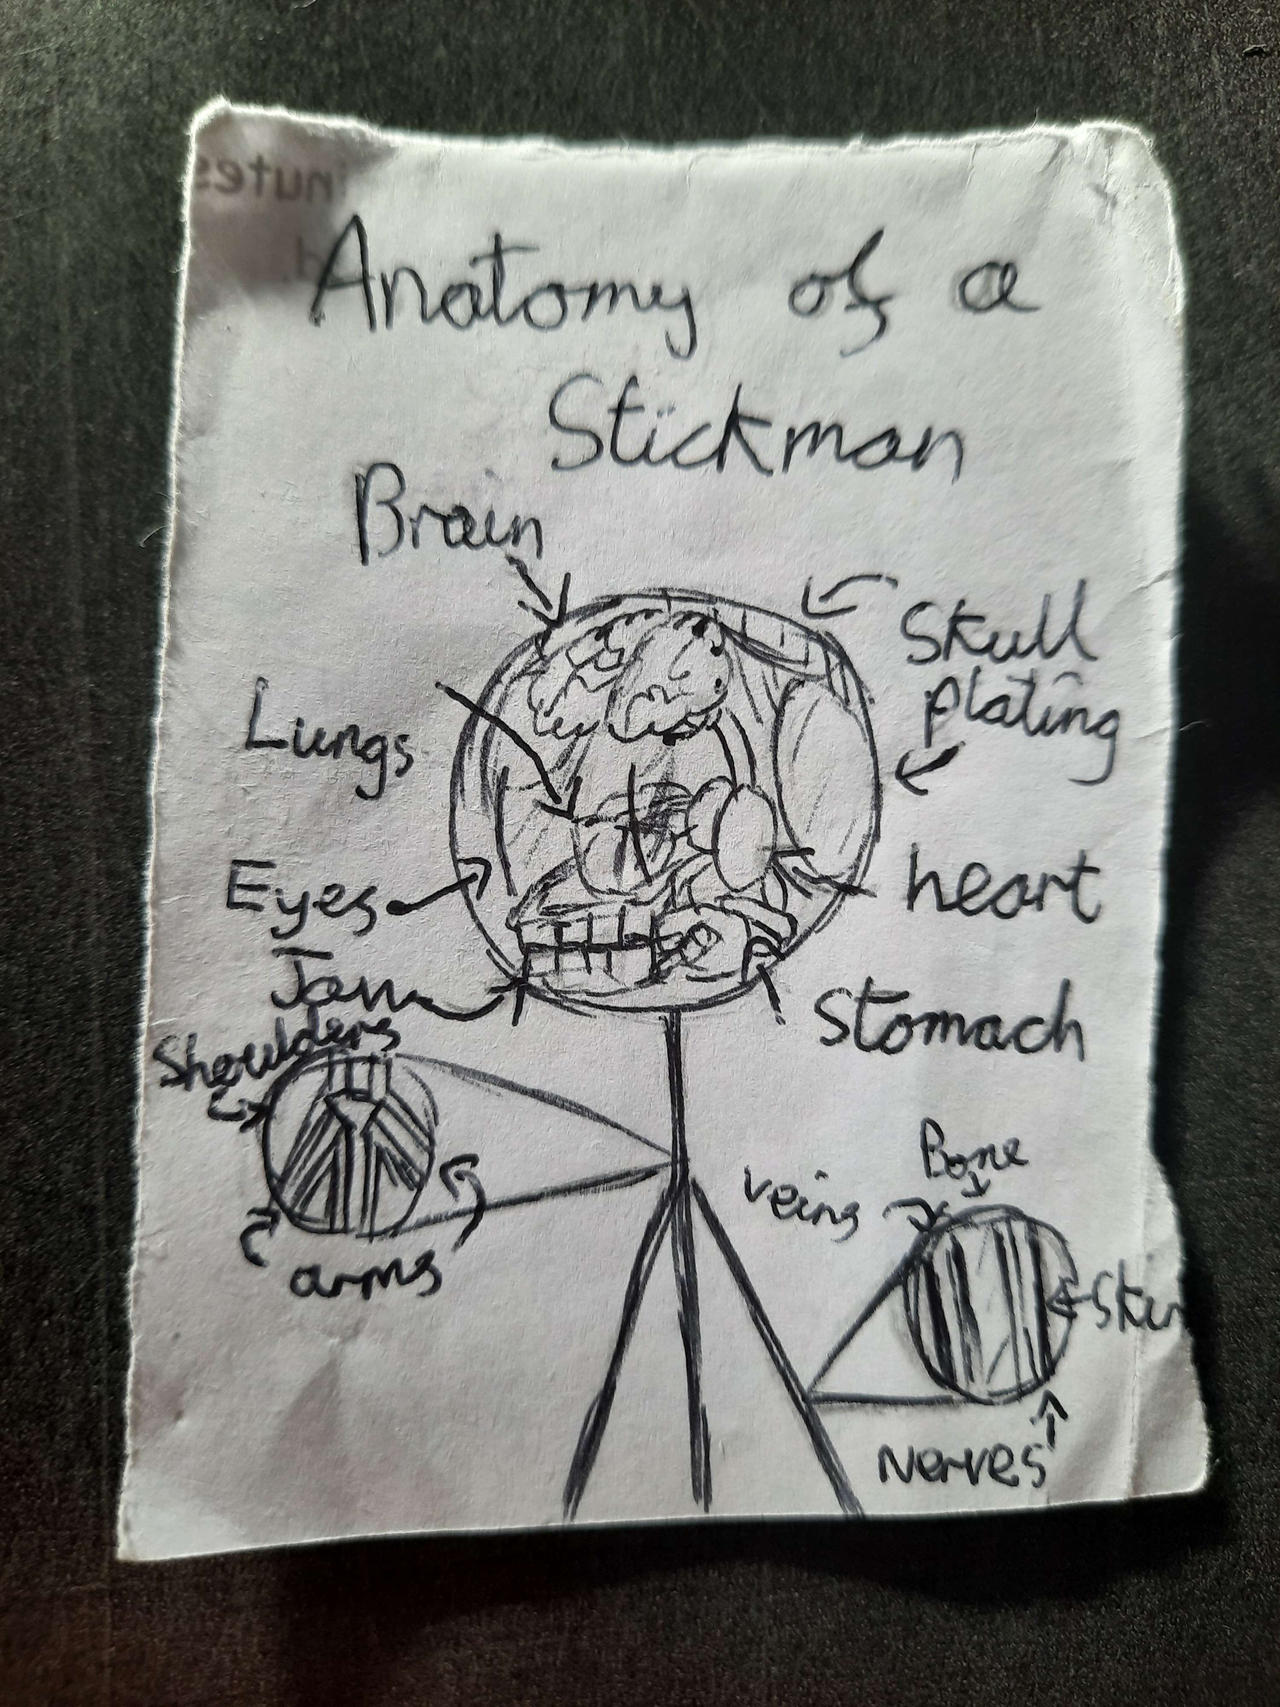 Anatomy of a
Stickman
Brain
Skull
plating
Lungs
Eyes
heart
Jaw
Stomach
Shoulders
arms
Bone
veins
Skin
Nerves